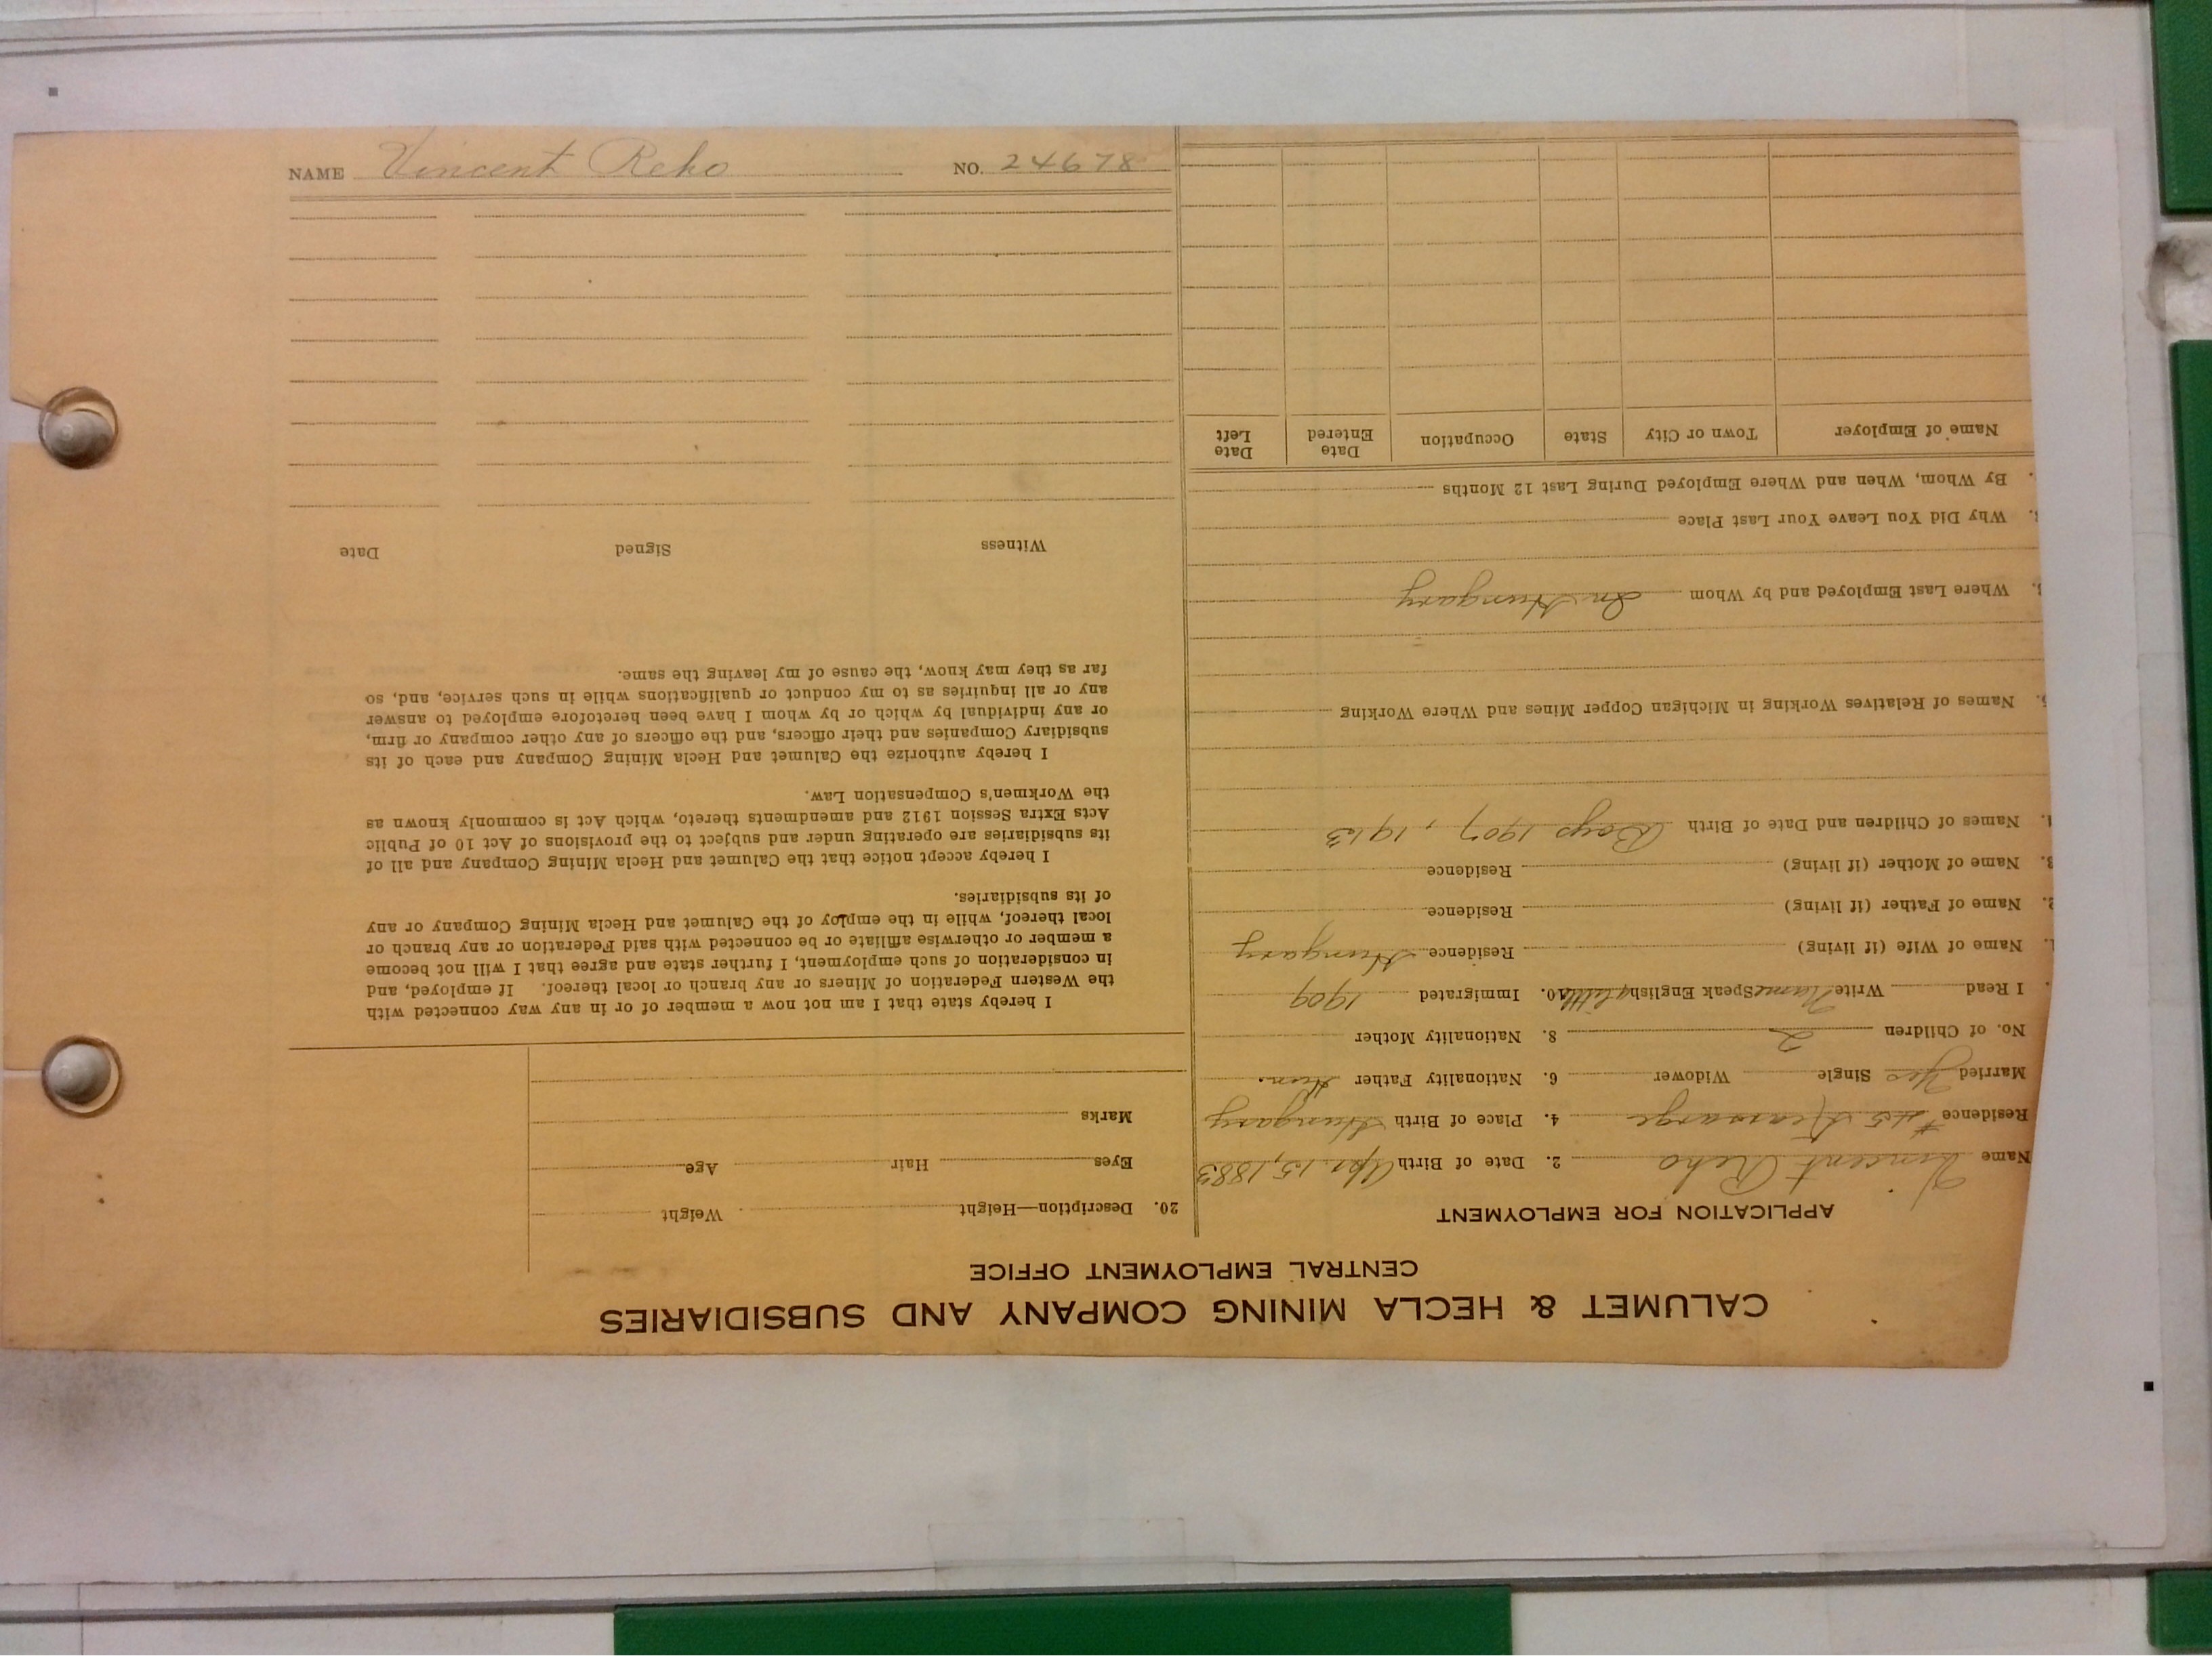 CALUMET & HECLA MINING COMPANY AND SUBSIDIARIES
CENTRAL EMPLOYMENT OFFICE
APPLICATION FOR EMPLOYMENT
Name Vincent Reho 2. Date of Birth Apr. 15, 1883
Residence #45 Kearsarge 4. Place of Birth Hungary
Married Yes Single Widower 6. Nationality Father Hun.
No. of Children 2 8. Nationality Mother
. I Read Write Name Speak English a little 10. Immigrated 1909
1. Name of Wife (if living) Residence Hungary
2. Name of Father (if living) Residence
3. Name of Mother (if living) Residence
4. Names of Children and Date of Birth Boys 1907, 1913
5. Names of Relatives Working in Michigan Copper Mines and Where Working
. Where Last Employed and by Whom In Hungary
. Why Did You Leave Your Last Place
. By Whom, When and Where Employed During Last 12 Months
Name of Employer Town or City State Occupation Date Entered Date Left
20. Description—Height Weight
Eyes Hair Age
Marks
I hereby state that I am not now a member of or in any way connected with
the Western Federation of Miners or any branch or local thereof. If employed, and
in consideration of such employment, I further state and agree that I will not become
a member or otherwise affiliate or be connected with said Federation or any branch or
local thereof, while in the employ of the Calumet and Hecla Mining Company or any
of its subsidiaries.
I hereby accept notice that the Calumet and Hecla Mining Company and all of
its subsidiaries are operating under and subject to the provisions of Act 10 of Public
Acts Extra Session 1912 and amendments thereto, which Act is commonly known as
the Workmen's Compensation Law.
I hereby authorize the Calumet and Hecla Mining Company and each of its
subsidiary Companies and their officers, and the officers of any other company or firm,
or any individual by which or by whom I have been heretofore employed to answer
any or all inquiries as to my conduct or qualifications while in such service, and, so
far as they may know, the cause of my leaving the same.
Witness Signed Date
NAME Vincent Reho NO. 24678